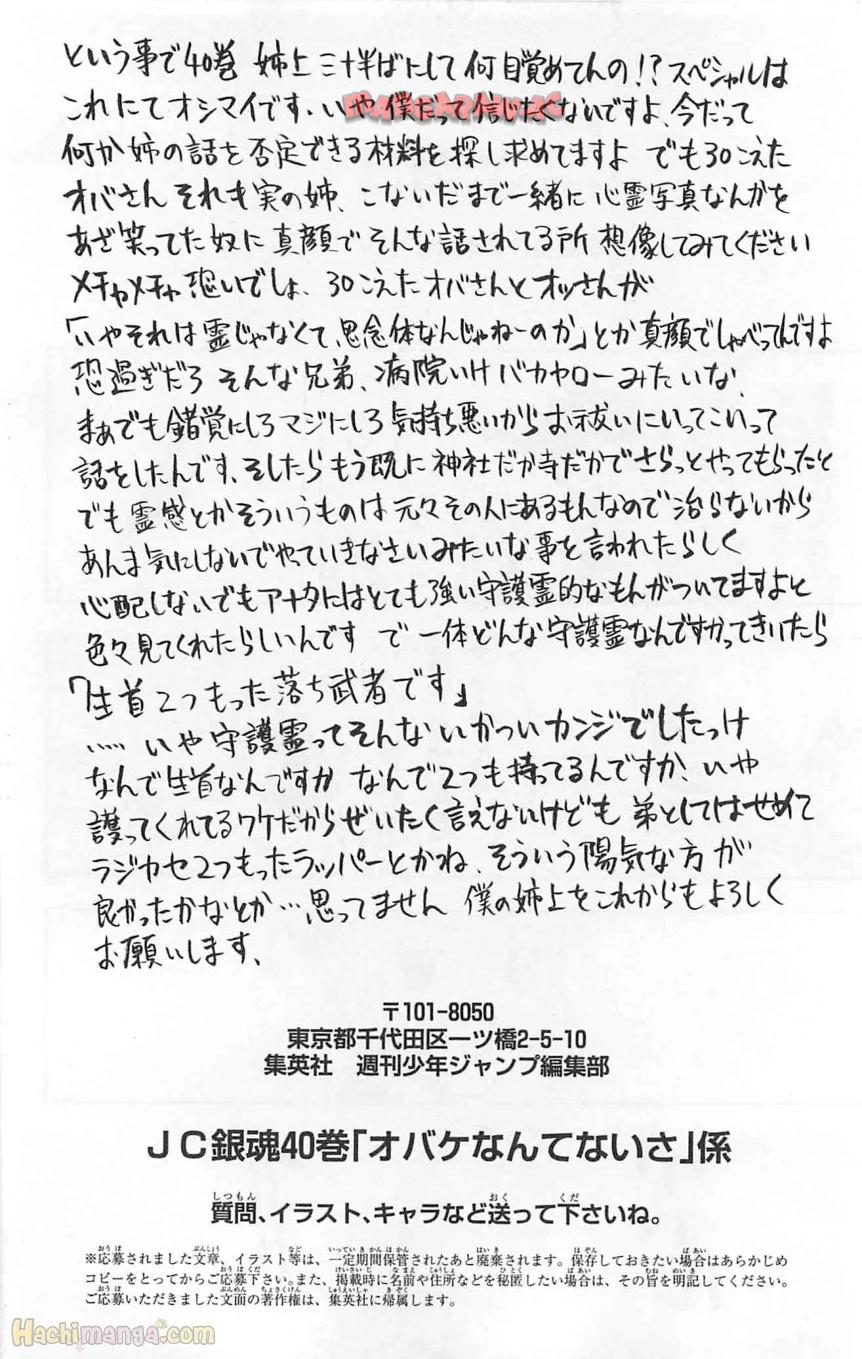 という事で40巻 姉上 三十半ばにして何目覚めてんの!?スペシャルは
これにてオシマイです、いや僕だって信じたくないですよ、今だって
何か姉の話を否定できる材料を探し求めてますよ でも30こえた
オバさん それも実の姉、こないだまで一緒に心霊写真なんかを
あざ笑ってた奴に真顔でそんな話されてる所想像してみてください
メチャメチャ恐いでしょ、30こえたオバさんとオッさんが
「いやそれは霊じゃなくて、思念体なんじゃねーのか」とか真顔でしゃべってんですよ
恐過ぎだろ そんな兄弟、病院いけバカヤローみたいな、
まぁでも錯覚にしろマジにしろ気持ち悪いからお祓いにいってこいって
話をしたんです、そしたらもう既に神社だか寺だかでさらっとやってもらったと
でも霊感とかそういうものは元々その人にあるもんなので治らないから
あんま気にしないでやっていきなさいみたいな事を言われたらしく
心配しないでもアナタにはとても強い守護霊的なもんがついてますよと
色々見てくれたらしいんです で 一体どんな守護霊なんですかってきいたら
「生首2つもった落ち武者です」
‥‥‥いや守護霊ってそんないかついカンジでしたっけ
なんで生首なんですか なんで2つも持ってるんですか、いや
護ってくれてるワケだからぜいたく言えないけども 弟としてはせめて
ラジカセ2つもったラッパーとかね、そういう陽気な方が
良かったかなとか…思ってません 僕の姉上をこれからもよろしく
お願いします、
〒101-8050
東京都千代田区一ツ橋2-5-10
集英社 週刊少年ジャンプ編集部
JC銀魂40巻「オバケなんてないさ」係
質問、イラスト、キャラなど送って下さいね。
※応募されました文章、イラスト等は、一定期間保管されたあと廃棄されます。保存しておきたい場合はあらかじめ
コピーをとってからご応募下さい。また、掲載時に名前や住所などを秘匿したい場合は、その旨を明記してください。
ご応募いただきました文面の著作権は、集英社に帰属します。
Hachimanga.com